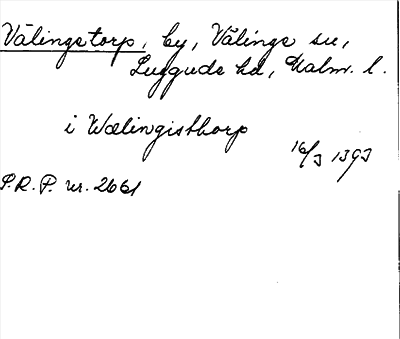 Välingetorp, by, Välinge sn,
Luggude hd, Malm. l.
i Wælingisthorp
16/3 1393
P.R.P. nr. 2661